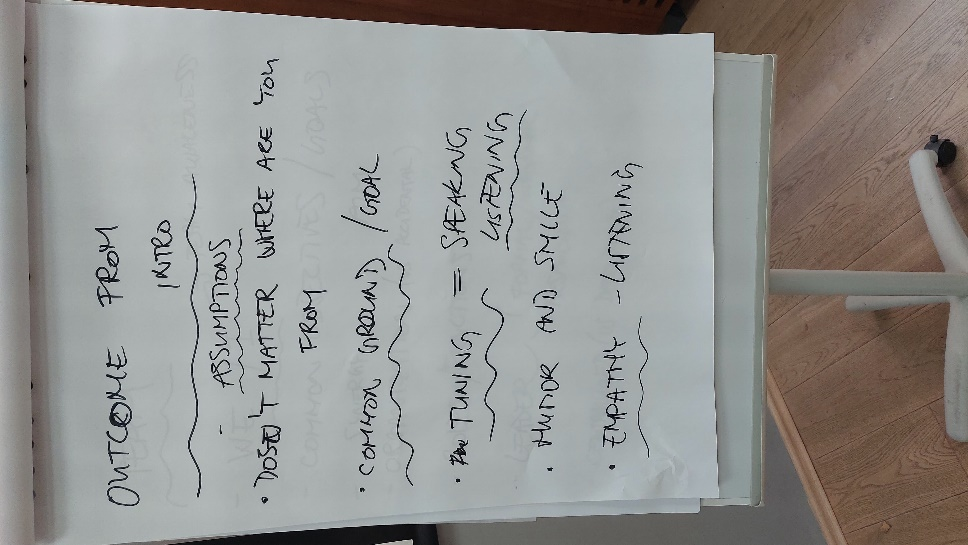 OUTCOME FROM
INTRO
- ASSUMPTIONS
• DOSEN'T MATTER WHERE ARE YOU
FROM
• COMMON GROUND / GOAL
• TUNING = SPEAKNG
LISTENING
• HUMOR AND SMILE
• EMPATHY - LISTENING